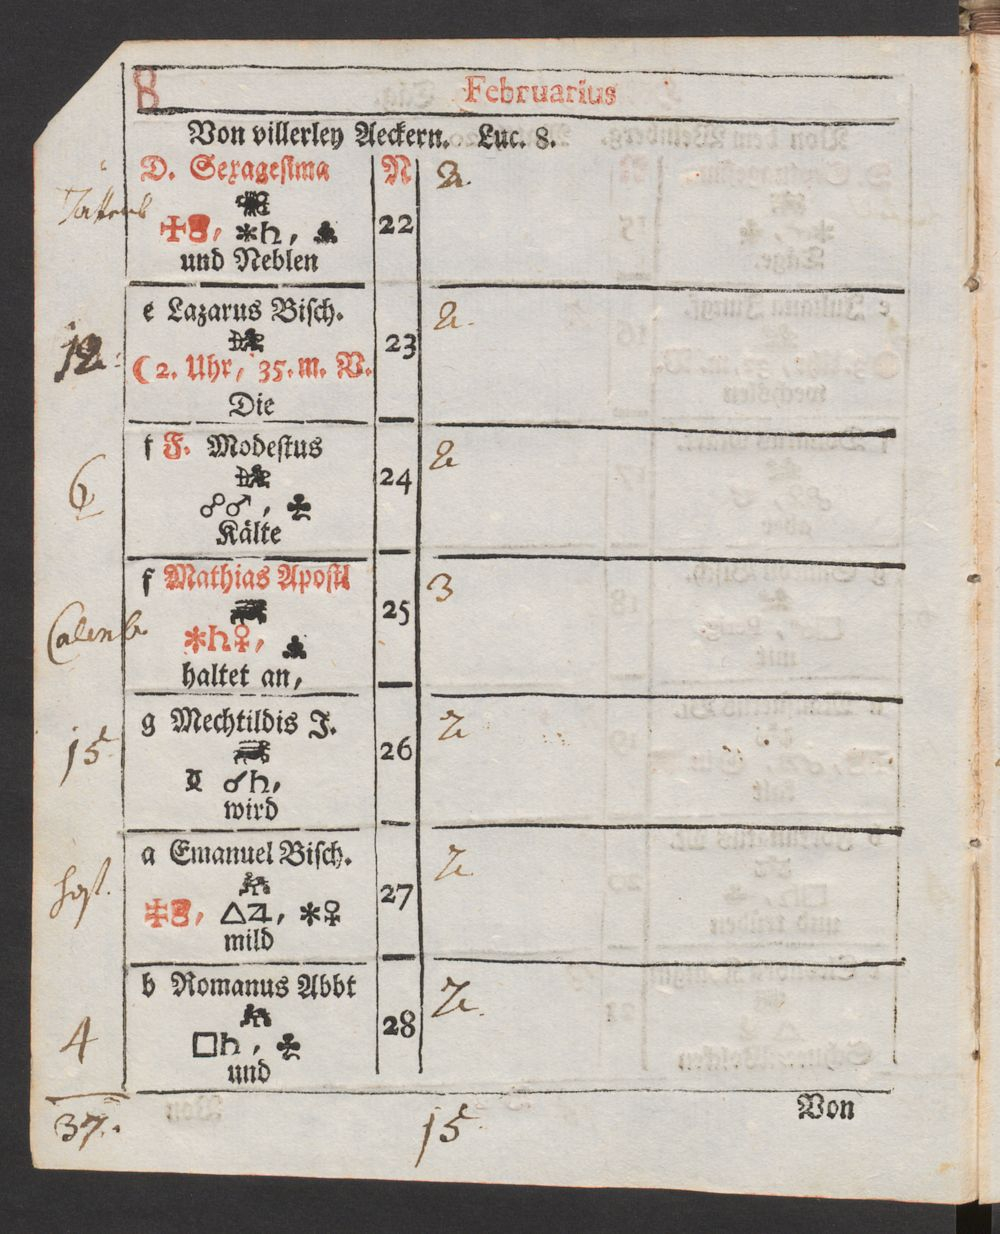 Februarius
Von villerley Aeckern. Luc. 8.
D. Sexagesima N 2.
✠, ✱♄, 22
und Neblen
e Lazarus Bisch. 2.
23
12.
☾ 2. Uhr, 35. m. V.
Die
f F. Modestus 2
24
6
☍♂, ♣
Kälte
f Mathias Apostl 3
25
✱♄♀,
haltet an,
g Mechtildis J. 2
26
15
☿ ☌♄,
wird
a Emanuel Bisch. 2.
27
✠, △♃, ✱♀
mild
b Romanus Abbt 2.
28
4
□♄, ♣
und
37. 15
Von